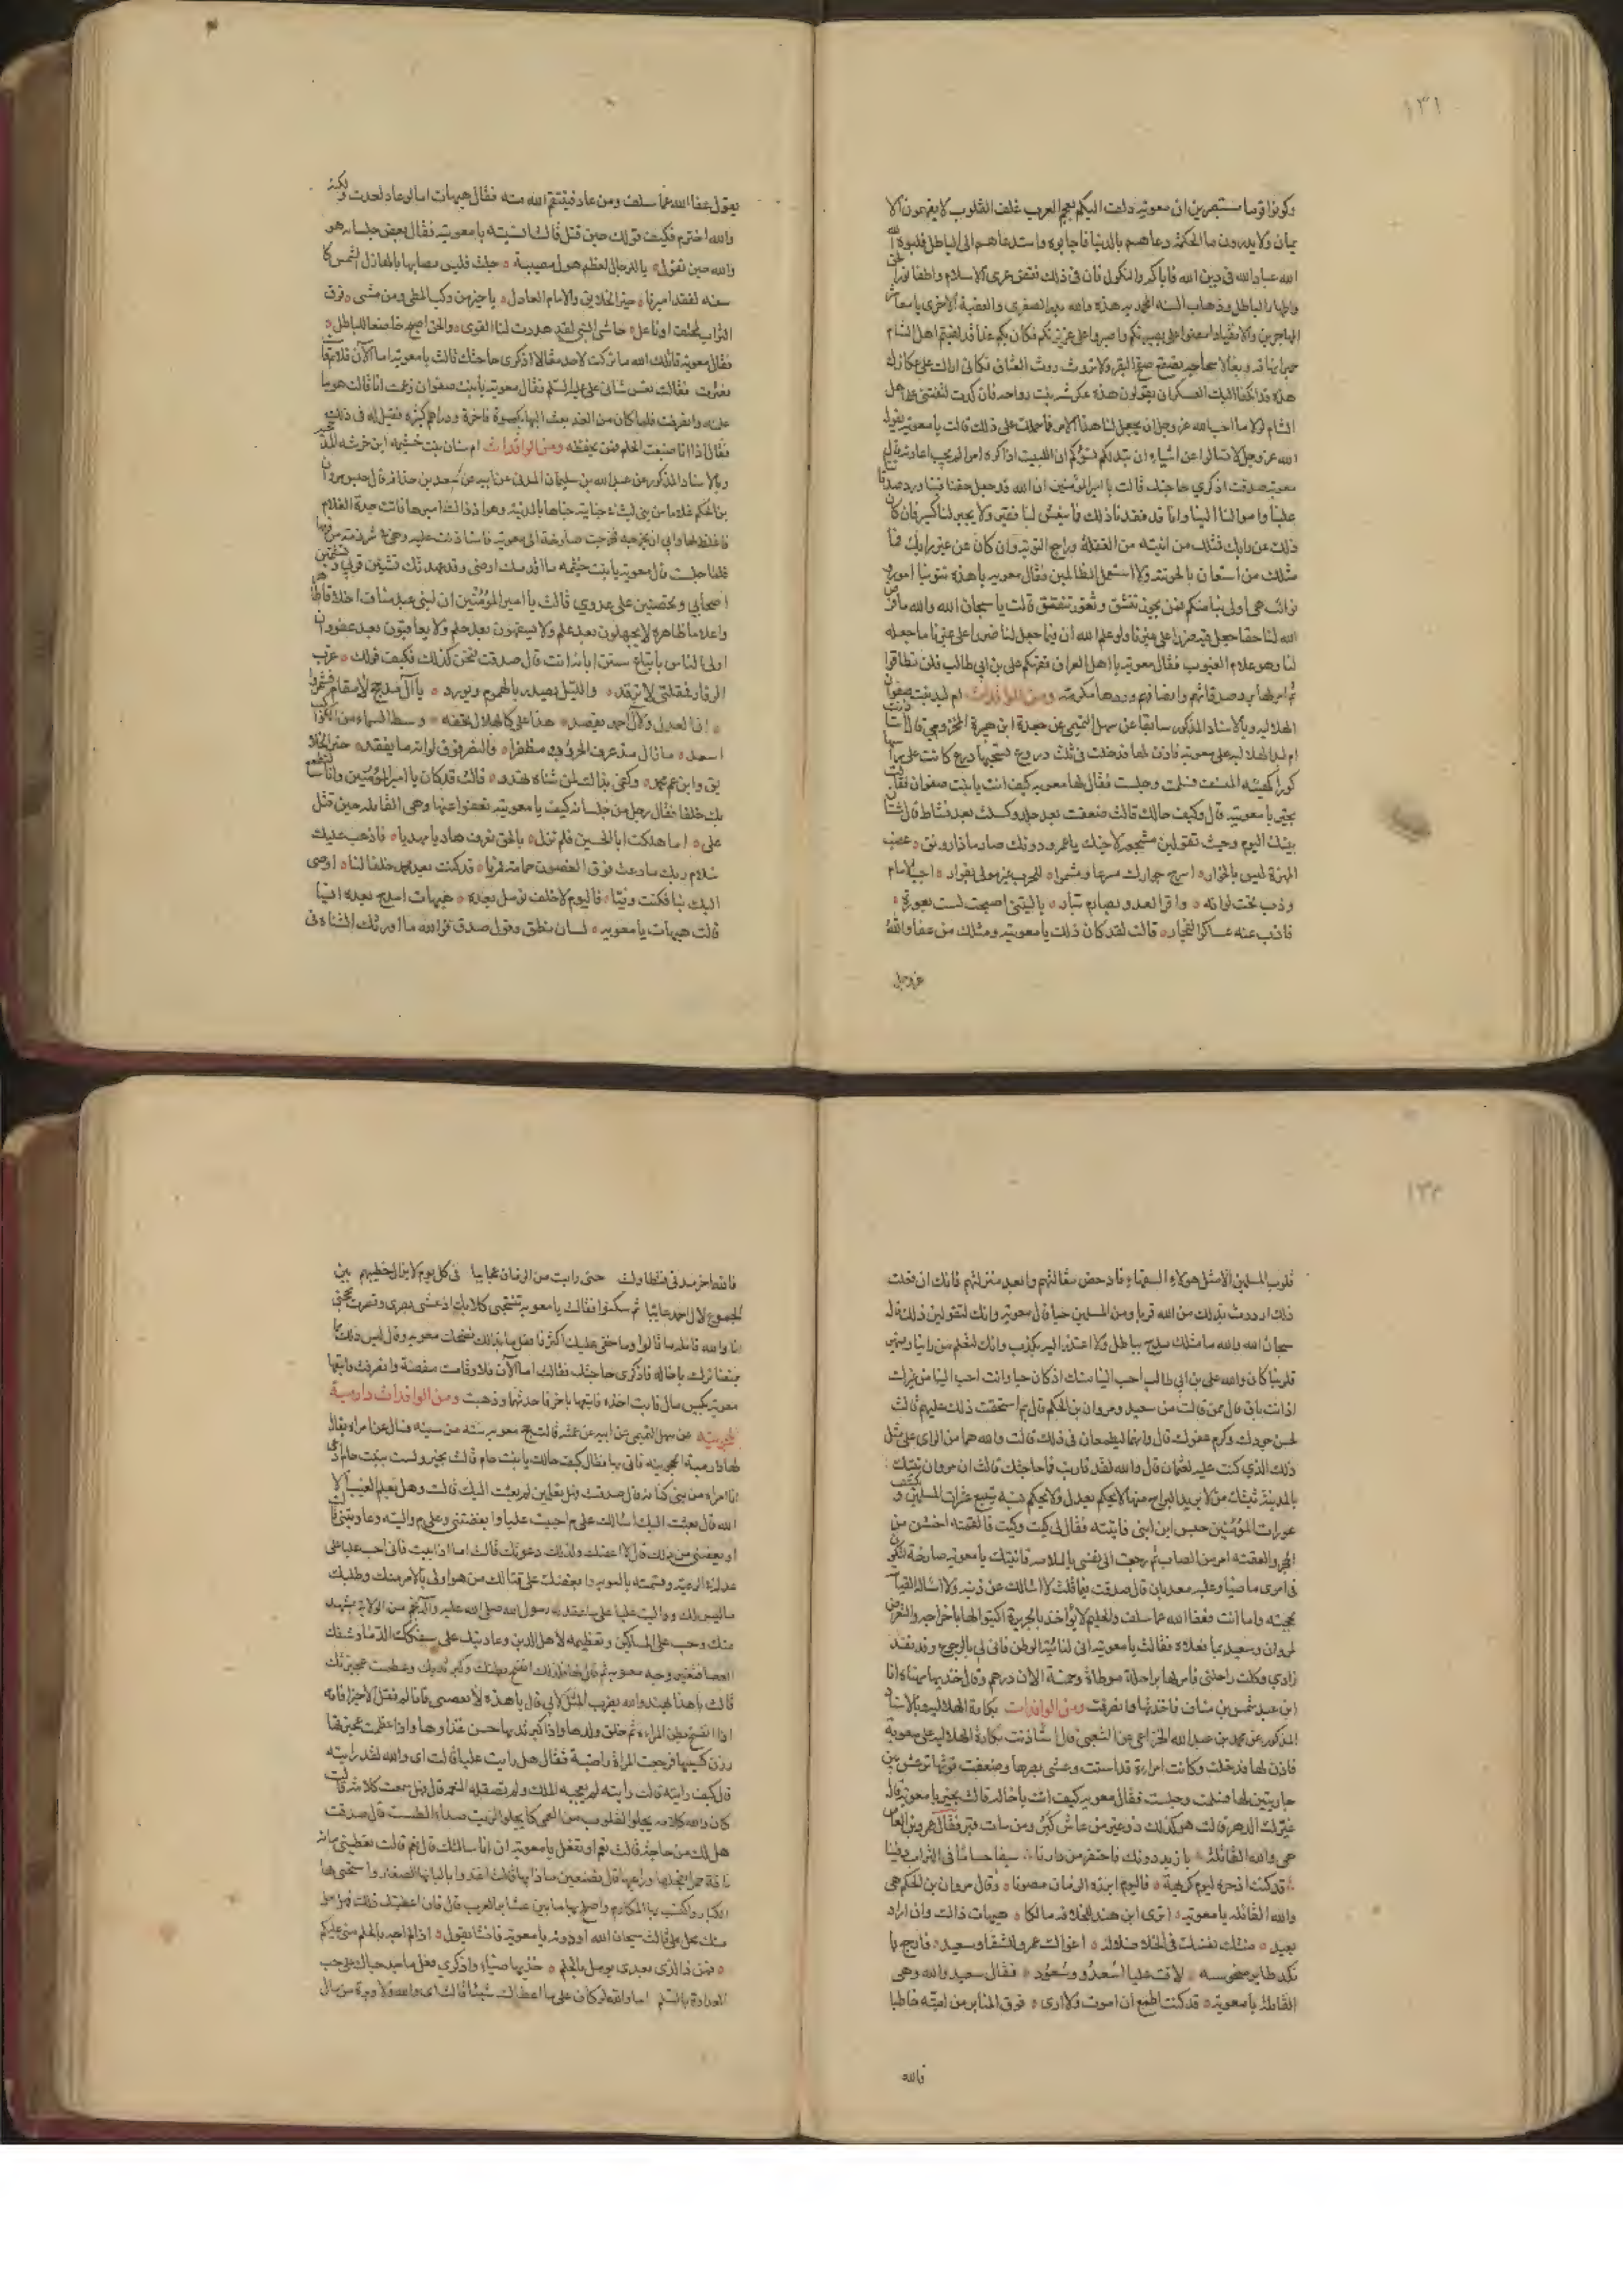 ١٣١
وكونوا قوما مستبصرين ان معوية دلف اليكم بعجم العرب غلف القلوب لا يفقهون الا
يمان ولا يدرون ما الحكمة دعاهم بالدنيا فاجابوه واستدعاهم الى الباطل فلبوه الله
الله عباد الله فى دين الله فاياكم والنكول فان فى ذلك نقض عرى الاسلام واطفا نور الحق
واظهار الباطل وذهاب السنة المحمدية هذه والله بدر الصغرى والعقبة الاخرى يا معاشر
المهاجرين والانصار امضوا على بصيرتكم واصبروا على عزيمتكم فكان بكم غدا قد لقيتم اهل الشام
هذه قد انكفا اليك العسكران يقولون هذه عكرشه بنت رواحه فان كدت لتفتني اهل
الشام لولا ما احب الله عز وجل ان يجعل لنا هذا الامر فما حملك على ذلك قالت يا معوية يقول
الله عز وجل لا تسالوا عن اشياء ان تبد لكم تسؤكم ان اللبيب اذا كره امرا لم يحب اعادته قال
معوية صدقت اذكري حاجتك قالت يا امير المؤمنين ان الله قد جعل حقنا فينا ورد صدقاتنا
علينا واموالنا الينا وانا قد فقدنا ذلك فما ينعش لنا فقير ولا يجبر لنا كسير فان كان
ذلك عن رايك فمثلك من انتبه من الغفلة وراجع التوبة وان كان عن غير رايك فما
مثلك من استعان بالخونة ولا استعمل الظالمين فقال معويه يا هذه تنوبنا امور
الله لنا حقا جعل فيه ضررا على غيرنا ولو علم الله ان فيما جعل لنا ضررا على غيرنا ما جعله
لنا وهو علام الغيوب فقال معوية يا اهل العراق فقركم على بن ابي طالب فلن تطاقوا
ثم امر لها برد صدقاتهم وانصافهم وردها مكرمة ومن الوافدات ام البنت صفوان
الهلاليه وبالاسناد المذكور سابقا عن سهل التيمي عن جعدة ابن هبيرة المخزومي قال استاذنت
فسلمت وجلست فقال لها معويه كيف انت يا بنت صفوان فقالت
بخير يا معوية قال وكيف حالك قالت ضعفت بعد جلد وكسلت بعد نشاط قال شتان
بينك اليوم وحيث تقولين يا عمرو دونك صارما ذا رونق عضب
المهزة ليس بالخوار اسرج جوادك مسرعا ومشمرا للحرب غير مولى بفرار اجب الامام
وذب تحت لوائه والقى العدو بصارم بتار ياليتني اصبحت لست بعورة
فاذب عنه عساكر الفجار قالت لقد كان ذلك يا معوية ومثلك من عفا والله
عز وجل
يقول عفا الله عما سلف ومن عاد فينتقم الله منه فقال هيهات اما لو عاد لعدت ولكنه
والله اخترم فكيف قولك حين قتل قالت نسيته يا معوية فقال بعض جلسائه هو
والله حين تقول يا للرجال لعظم هول مصيبة جلت فليس مصابها بالهازل الشمس كا
سفة لفقد اميرنا خير الخلايق والامام العادل يا خير من ركب المطي ومن مشى فوق
التراب لمحتف او ناعل حاشى النبي لقد هددت لنا القوى والحق اصبح خاضعا للباطل
فقال معوية قاتلك الله ما تركت لاحد مقالا اذكرى حاجتك قالت يا معوية اما الان فلا وقامت
فعثرت فقالت تعس شانى على عليه السلم فقال معوية يا بنت صفوان زعمت الا قالت هو ما
علمت وانصرفت فلما كان من الغد بعث اليها بكسوة فاخرة ودراهم كثيرة فقيل له فى ذلك
فقال اذا انا ضيعت الحلم فمن يحفظه ومن الوافدات ام سنان بنت خيثمه ابن خرشه المذحجية
وبالاسناد المذكور عن عبد الله بن سليمان المدنى عن ابيه عن سعد بن حذافه قال حبس مروان
بن الحكم غلاما من بني ليث فى جناية جناها بالمدينة وهو اذ ذاك اميرها فاتت جدة الغلام
فاغلظ لها وابى ان يخرجه فخرجت صارخة الى معوية فاستاذنت عليه
فلما جلست قال معوية يا بنت خيثمه ما اقدمك ارضى وقد عهدتك تشنين قربي
اصحابي وتحضين على عدوي قالت يا امير المؤمنين ان لبنى عبد مناف اخلاقا طاهرة
واعلاما ظاهرة لا يجهلون بعد علم ولا يسفهون بعد حلم ولا يعاقبون بعد عفو وان
اولى الناس باتباع سنن ابائه انت قال صدقت نحن كذلك فكيف قولك عزب
الرقاد فمقلتي لا ترقد والليل يصدر بالهموم ويورد يا آل مذحج لا مقام فشمروا
ان العدو لآل احمد يقصد هذا على كالهلال تحفه وسط السماء من الكواكب
اسعد ما زال مذ عرف الحروب مظفرا والنصر فوق لوائه ما يفقد خير الخلا
يق وابن عم محمد وكفى بذاك لمن شناه تهدد قالت قد كان يا امير المؤمنين وانا نطمع
بك خلفا فقال رجل من جلسائه كيف يا معوية تعفوا عنها وهي القايلة حين قتل
على اما هلكت ابا الحسين فلم تزل بالحق تعرف هاديا مهديا فاذهب عليك
سلام ربك ما دعت فوق الغصون حمامة قمريا قد كنت بعد محمد خلفا لنا اوصى
اليك بنا فكنت وفيا فاليوم لا خلف نؤمل بعده هيهات امدح بعده انسيا
قالت هيهات يا معويه لسان نطق وقول صدق فوالله ما اورثك الشناءة فى
١٣٢
قلوب المسلمين الا مثل هولاء السفهاء فادحض مقالتهم وابعد منزلتهم فانك ان فعلت
ذلك ازددت بذلك من الله قربا ومن المسلمين حبا قال معوية وانك لتقولين ذلك قالت
سبحان الله والله ما مثلك مدح بباطل ولا اعتذر اليه بكذب وانك لتعلم من راينا وضمير
قلوبنا كان والله على بن ابي طالب احب الينا منك اذ كان حيا وانت احب الينا من غيرك
اذ انت باق قال ممن قالت من سعيد ومروان بن الحكم قال بم استحقت ذلك عليهم قالت
لحسن جودك وكرم عفوك قال وانهما ليطمعان فى ذلك قالت والله هما من الراى على مثل
ذلك الذي كنت عليه لعثمان قال والله لقد قاربت فما حاجتك قالت ان مروان تبنك
بالمدينة تبنك من لا يريد البراح منها لا يحكم بعدل ولا يحكم فيه يتبع عثرات المسلمين ويكشف
عورات المؤمنين حبس ابن ابنى فاتيته فقال لى كيت وكيت فالقمته اخشن من
الحجر والعقته امر من الصاب ثم رجعت الى نفسي بالملامه فاتيتك يا معويه صارخة لتكون
فى امرى ماضيا وعليه معديا قال صدقت فيما قلت لا اسالك عن ذنبه ولا اساله القيام
بحجته واما انت فعفا الله عما سلف والحليم لا يؤاخذ بالجريرة اكتبوا لها باخراجه
لمروان وسعيد بما فعلاه فقالت يا معوية انى لنائية الوطن فانى لى بالرجوع وقد نفد
زادي وكلت راحلتى فامر لها براحلة موطاة وخمسة الاف درهم وقال خذيها هناة انا
ابن عبد شمس بن مناف فاخذتها وانصرفت ومن الوافدات بكارة الهلالية وبالاسناد
المذكور عن محمد بن عبد الله الخزاعى عن الشعبى قال استاذنت بكارة الهلاليه على معوية
فاذن لها فدخلت وكانت امراءة قد اسنت وعشى بصرها وضعفت قوتها ترعش بين
جاريتين لها فسلمت وجلست فقال معويه كيف انت يا خاله قالت بخير يا معوية قال
غيرك الدهر قالت هو كذلك ذو غير من عاش كبر ومن مات قبر فقال عمرو بن العاص
هى والله القائلة يا زيد دونك فاحتفر من دارنا سيفا حساما فى التراب دفينا
قد كنت اذخره ليوم كريهة فاليوم ابرزه الزمان مصونا وقال مروان بن الحكم هى
والله القائله يا معوية اترى ابن هند للخلافه مالكا هيهات ذاك وان اراد
بعيد منتك نفسك فى الخلا ضلالة اغواك عمرو للشقا وسعيد فارجع با
نكد طاير منحوسه لاقت عليا اسعد وسعود فقال سعيد والله وهى
القائلة يا معوية قد كنت اطمع ان اموت ولا ارى فوق المنابر من امية خاطبا
فالله
فالله اخر مدتى فتطاولت حتى رايت من الزمان عجايبا فى كل يوم لا يزال خطيبهم بين
الجموع لال احمد عائبا ثم سكتوا فقالت يا معويه نبحتنى كلابك اذ عشى بصرى وقصرت حجتى
انا والله قائلة ما قالوا وما خفى عليك اكثر فضحك معويه وقال ليس ذلك بما
يمنعنا برك يا خاله فاذكرى حاجتك فقالت اما الان فلا وقامت مغضبة وانصرفت واتبعها
معوية بكيس مال فابت اخذه ومن الوافدات دارمية
الحجونيه عن سهل التميمى عن ابيه عن عمته قالت حج معويه سنة من سنيه فسال عن امراة يقال
لها دارمية الحجونيه فاتى بها فقال كيف حالك يا بنت حام قالت بخير ولست ببنت حام
انا امراة من بنى كنانه قال صدقت وهل تعلمين لم بعثت اليك قالت وهل يعلم الغيب الا
الله قال بعثت اليك اسالك على م احببت عليا وابغضتنى وعلى م واليته وعاديتنى قالت
او تعفينى من ذلك قال لا اعفيك ولذلك دعوتك قالت اما اذا ابيت فانى احب عليا على
عدله فى الرعية وقسمته بالسويه وابغضتك على قتالك من هو اولى بالامر منك وطلبك
ما ليس لك وواليت عليا على ما عقد له رسول الله صلى الله عليه واله من الولاية
منك وحب على المساكين وتعظيمه لاهل الدين وعاديتك على سفكك الدما وشقك
العصا فتغير وجه معويه ثم قال لها فلذلك انتفخ بطنك وكبر ثديك وعظمت عجيزتك
قالت يا هذا بهند والله يضرب المثل لا بي قال يا هذه لا تغضبى فانا لم نقل الا خيرا فانه
اذا انتفخ بطن المراءة تم خلق ولدها واذا كبر ثديها حسن غذاوها واذا عظمت عجيزتها
رزن كسيها فرجعت المراة راضية فقال هل رايت عليا قالت اى والله لقد رايته
قال كيف رايته قالت رايته لم يعجبه الملك ولم تصقله النعمة قال فهل سمعت كلامه قالت
كان والله كلامه يجلوا القلوب من العمى كما يجلو الزيت صداء الطست قال صدقت
هل لك من حاجة قالت نعم او تفعل يا معوية ان انا سالتك قال نعم قالت تعطينى مائة
ناقة حمرا بفحلها وراعيها قال تصنعين ماذا بها قالت اغدوا بالبانها الصغار واستحيي بها
الكبار واكتسب بها المكارم واصلح بها ما بين عشاير العرب قال فان اعطيتك ذلك
منك محل على قالت سبحان الله او دونه يا معوية فانشا يقول اذا لم اجد بالحلم منى عليكم
فمن ذا الذى بعدى يؤمل بالحلم خذيها هنياء واذكري فعل ماجد حباك على حب
العداوة بالسلم اما والله لو كان على ما اعطاك شيئا قالت اى والله ولا وبرة من مال